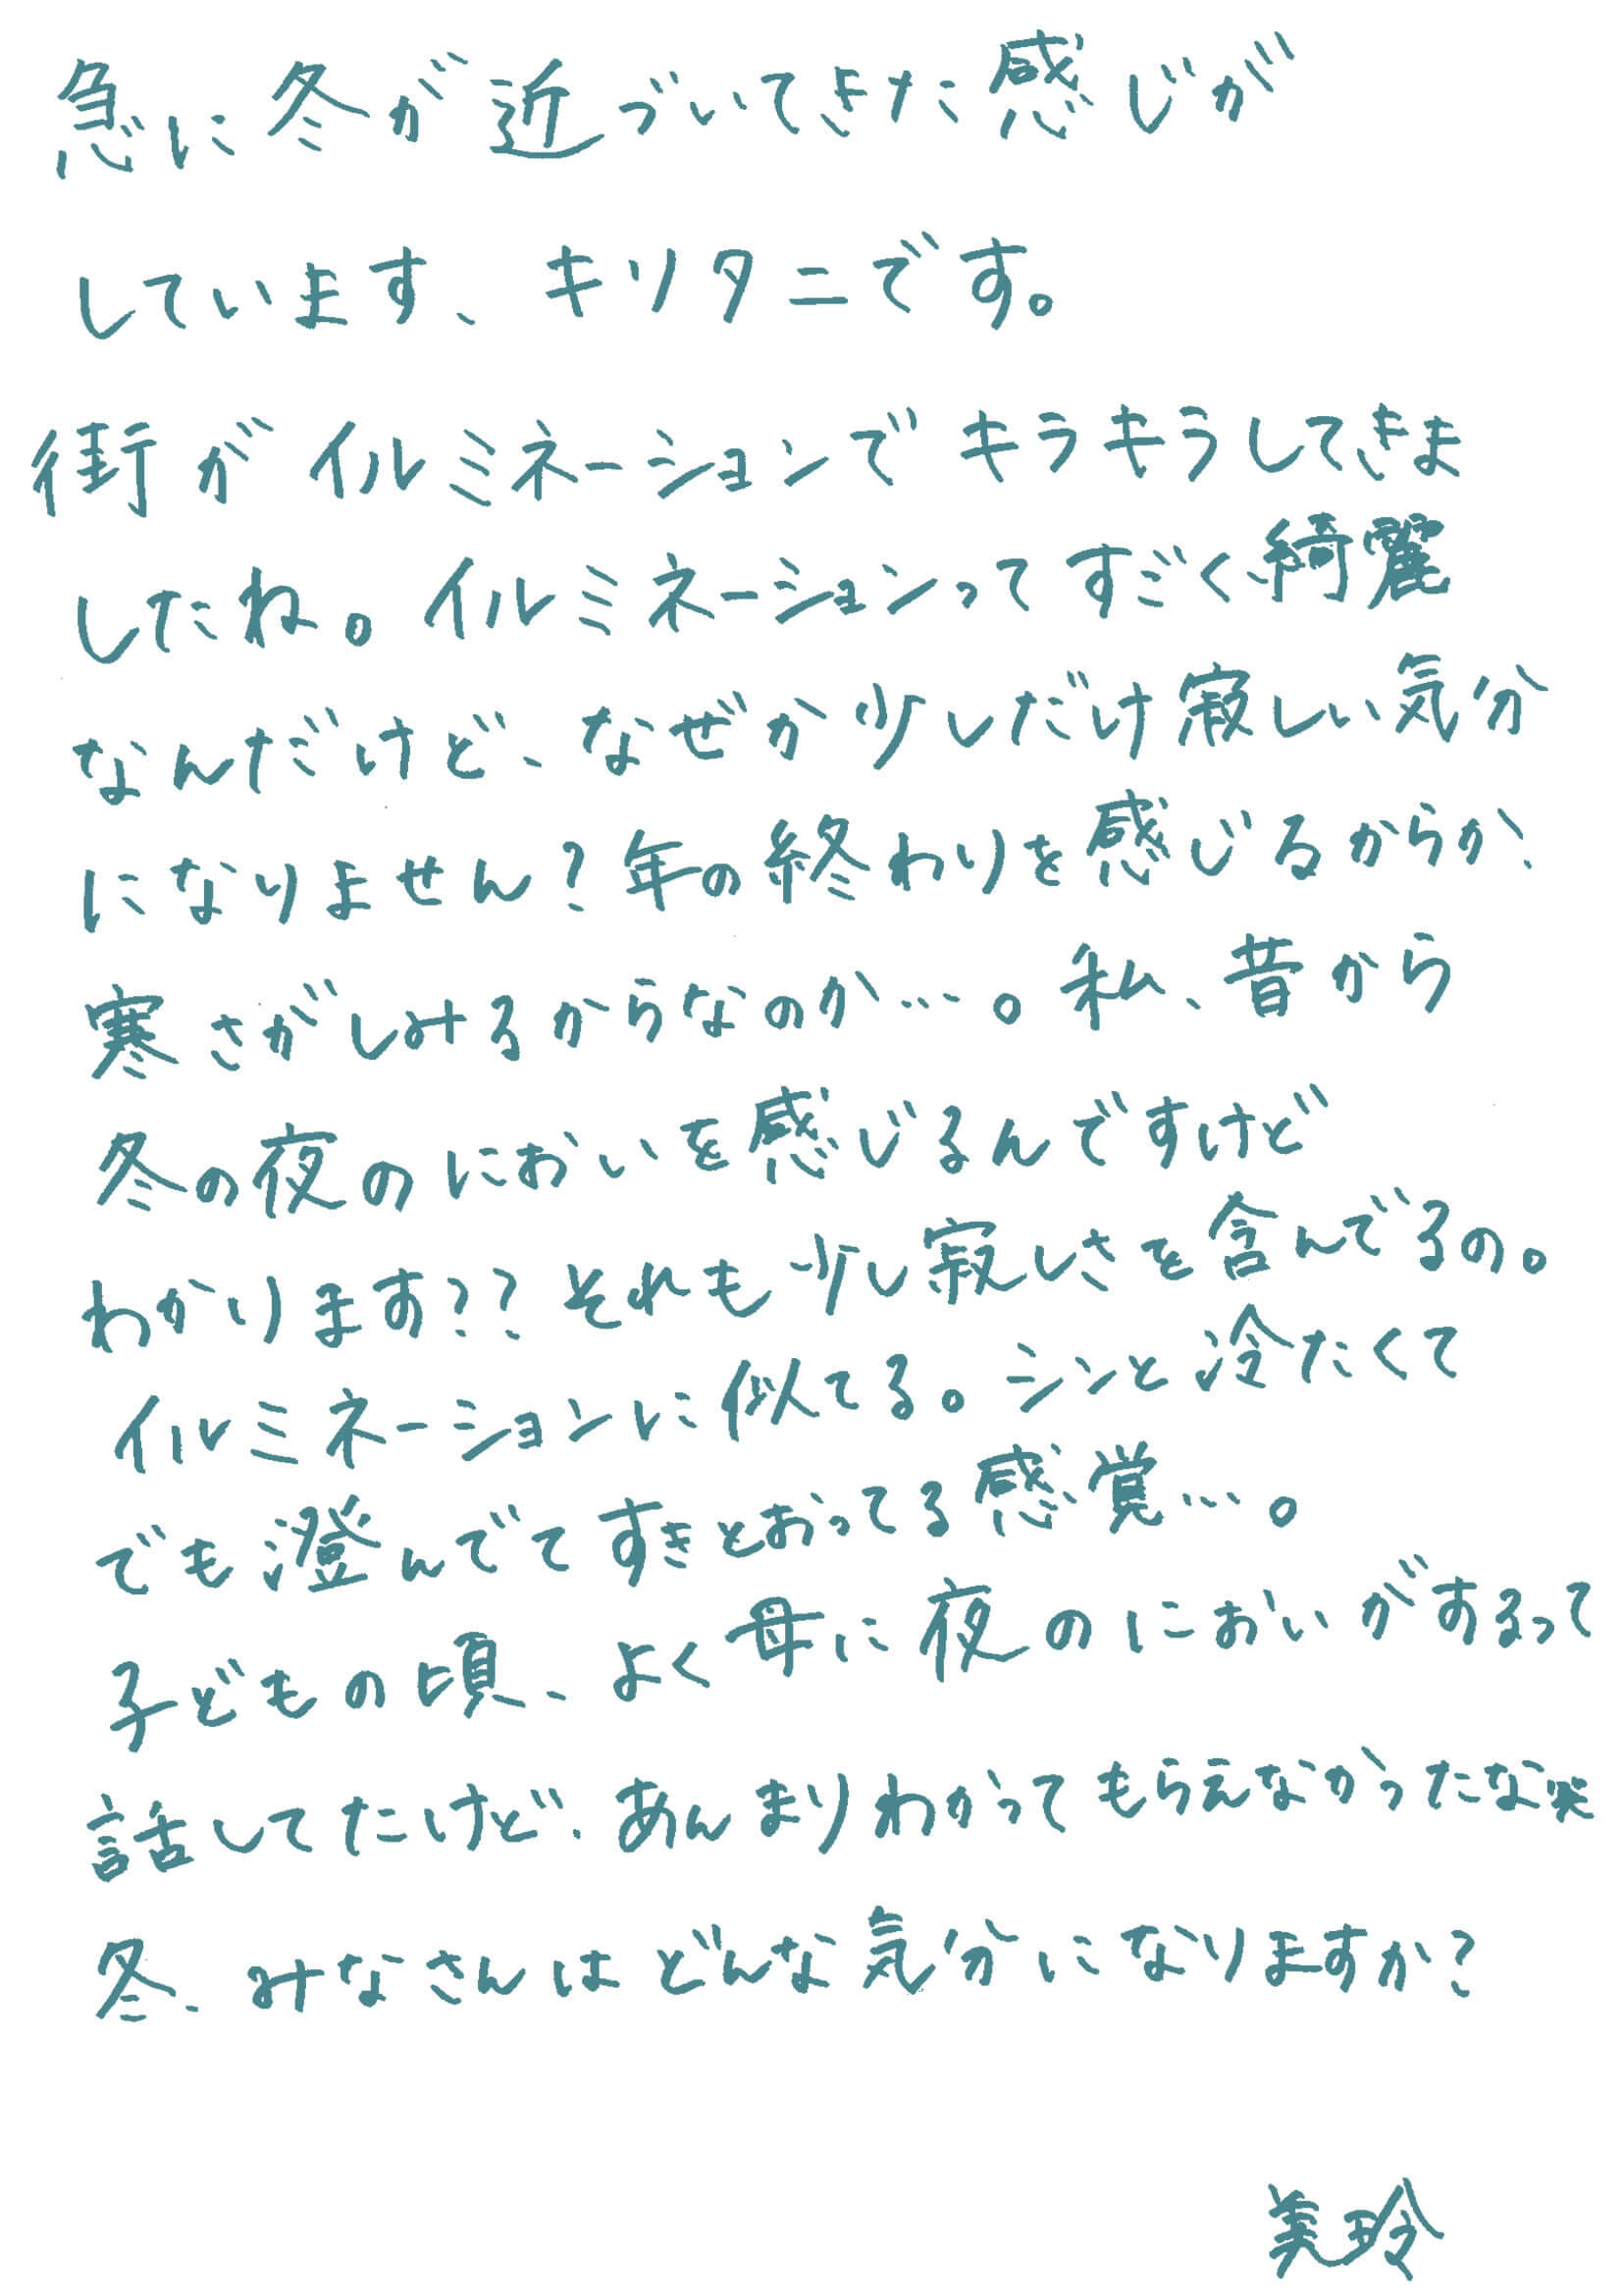 急に冬が近づいてきた感じが
しています、キリタニです。
街がイルミネーションでキラキラしてきま
したね。イルミネーションってすごく綺麗
なんだけど、なぜか少しだけ寂しい気分
になりません?年の終わりを感じるからか、
寒さがしみるからなのか…。私、昔から
冬の夜のにおいを感じるんですけど
わかります??それも少し寂しさを含んでるの。
イルミネーションに似てる。シンと冷たくて
でも澄んでてすきとおってる感覚…。
子どもの頃、よく母に夜のにおいがするって
話してたけど、あんまりわかってもらえなかったな笑
冬、みなさんはどんな気分になりますか?
美玲